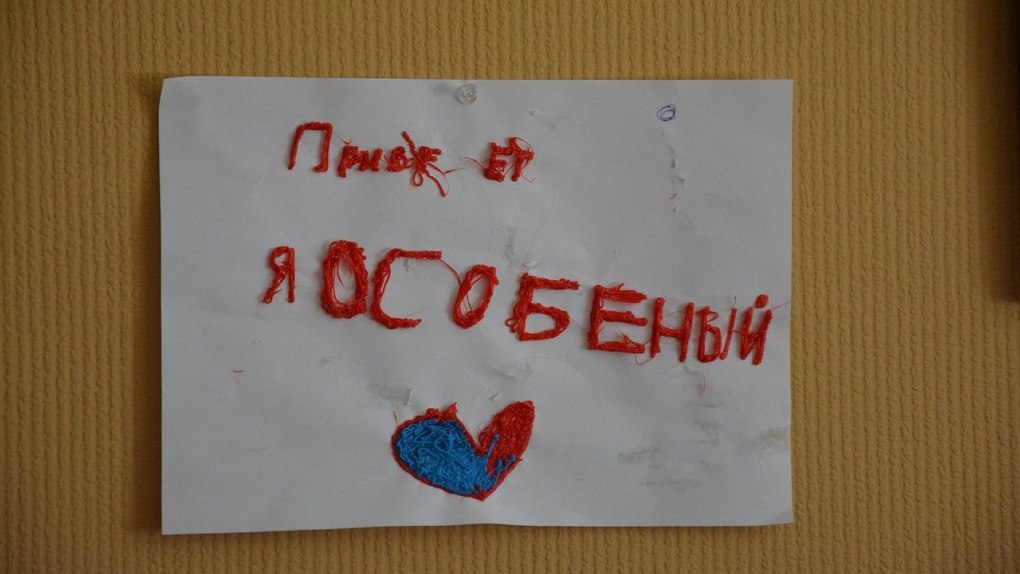 Привет
я ОСОБЕНЫЙ